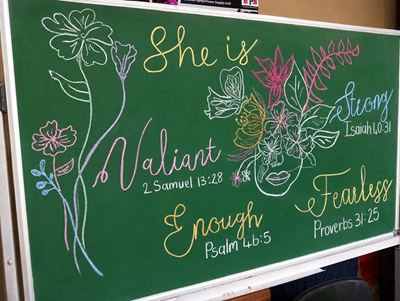 She is
Strong
Isaiah 40:31
Valiant
2 Samuel 13:28
Fearless
Proverbs 31:25
Enough
Psalm 46:5